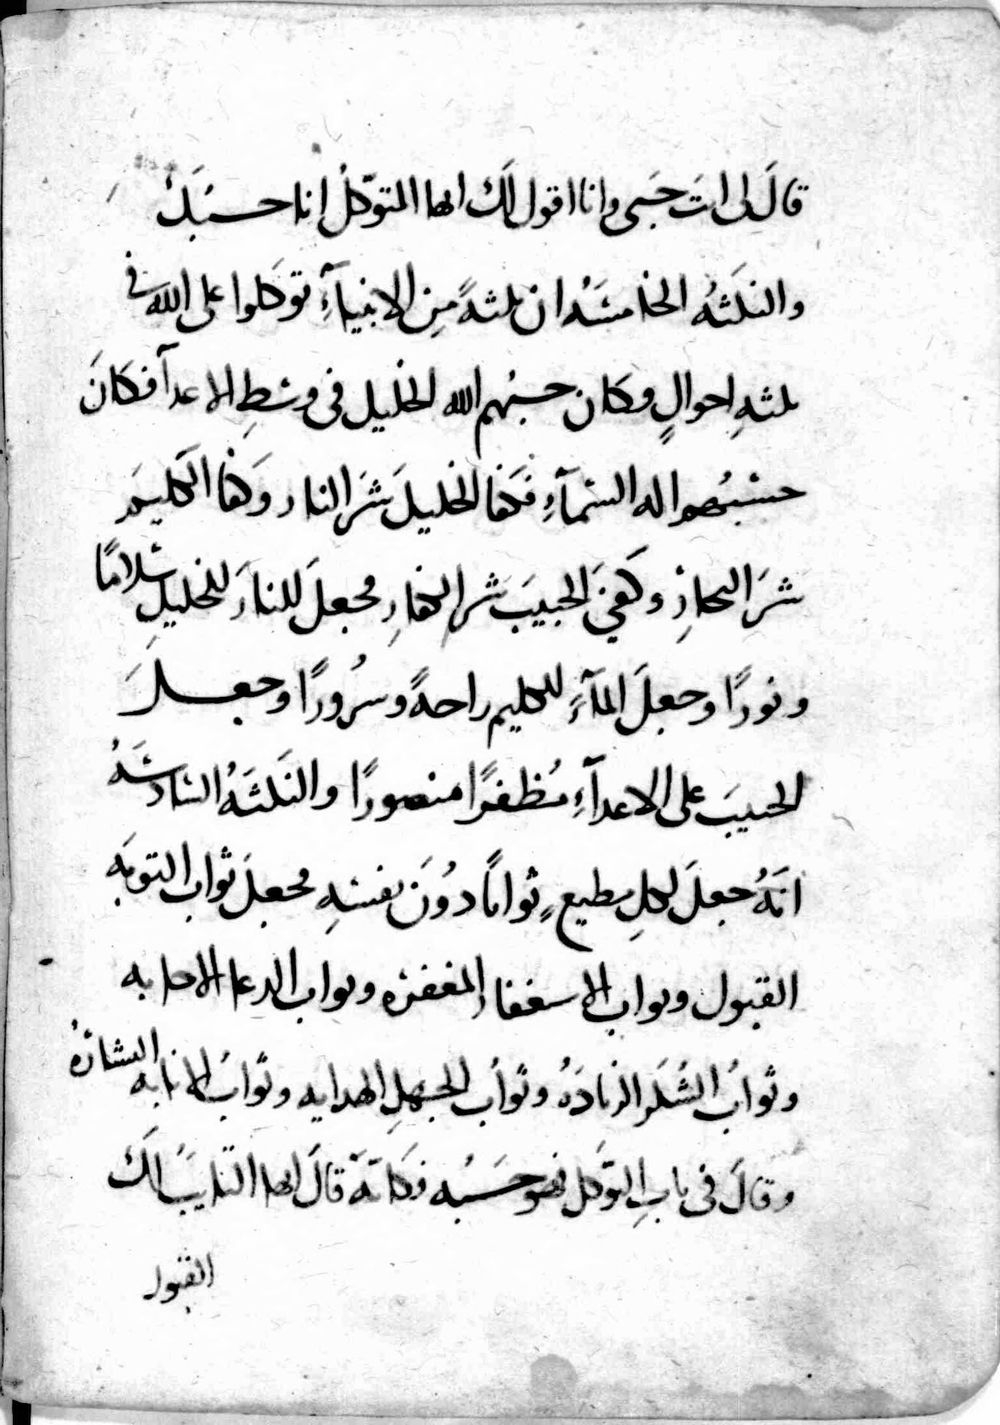 قالَ لى انتَ حسَبى وانا اقول لكَ ايها المتوكّلُ انا حسبكَ
والنكَتهُ الخامسَة ان ثلثةً مِن الانبيآءِ توكلوا على الله فى
ثلثةِ احوالٍ وكان حسبُهم الله الخليل فى وسَطِ الاعدآ فكانَ
حسْبُهم اله السّمآءِ فكفا الخليلَ شرَ النار وكفا الكليمَ
شرَ البحارِ وكفىَ الحبيبَ شر الكفارِ فجعلَ للنارَ للخليلِ سَلامًا
ونورًا وجعلَ المآءَ للكليم راحةً وسُرورًا وجعلَ
الحبيبَ على الاعدآءِ مُظفرًا منصورًا والنَكتَهُ السَادسَهُ
انهُ جعلَ لكلِ مطيعٍ ثوابًا دوُنَ نفسهِ فجعلَ ثواب التوبَه
القبول وثواب الاستغفار المغفره وثواب الدعا الاجابه
وثوابُ الشُكر الزيادَهُ وثوابُ الجهلِ الهدايه وثوابُ الانابه البشارَهُ
وقالَ فى بابِ التوكل فهوَ حسَبُه فكانهَ قالَ ايها التايبُ لكَ
القبول